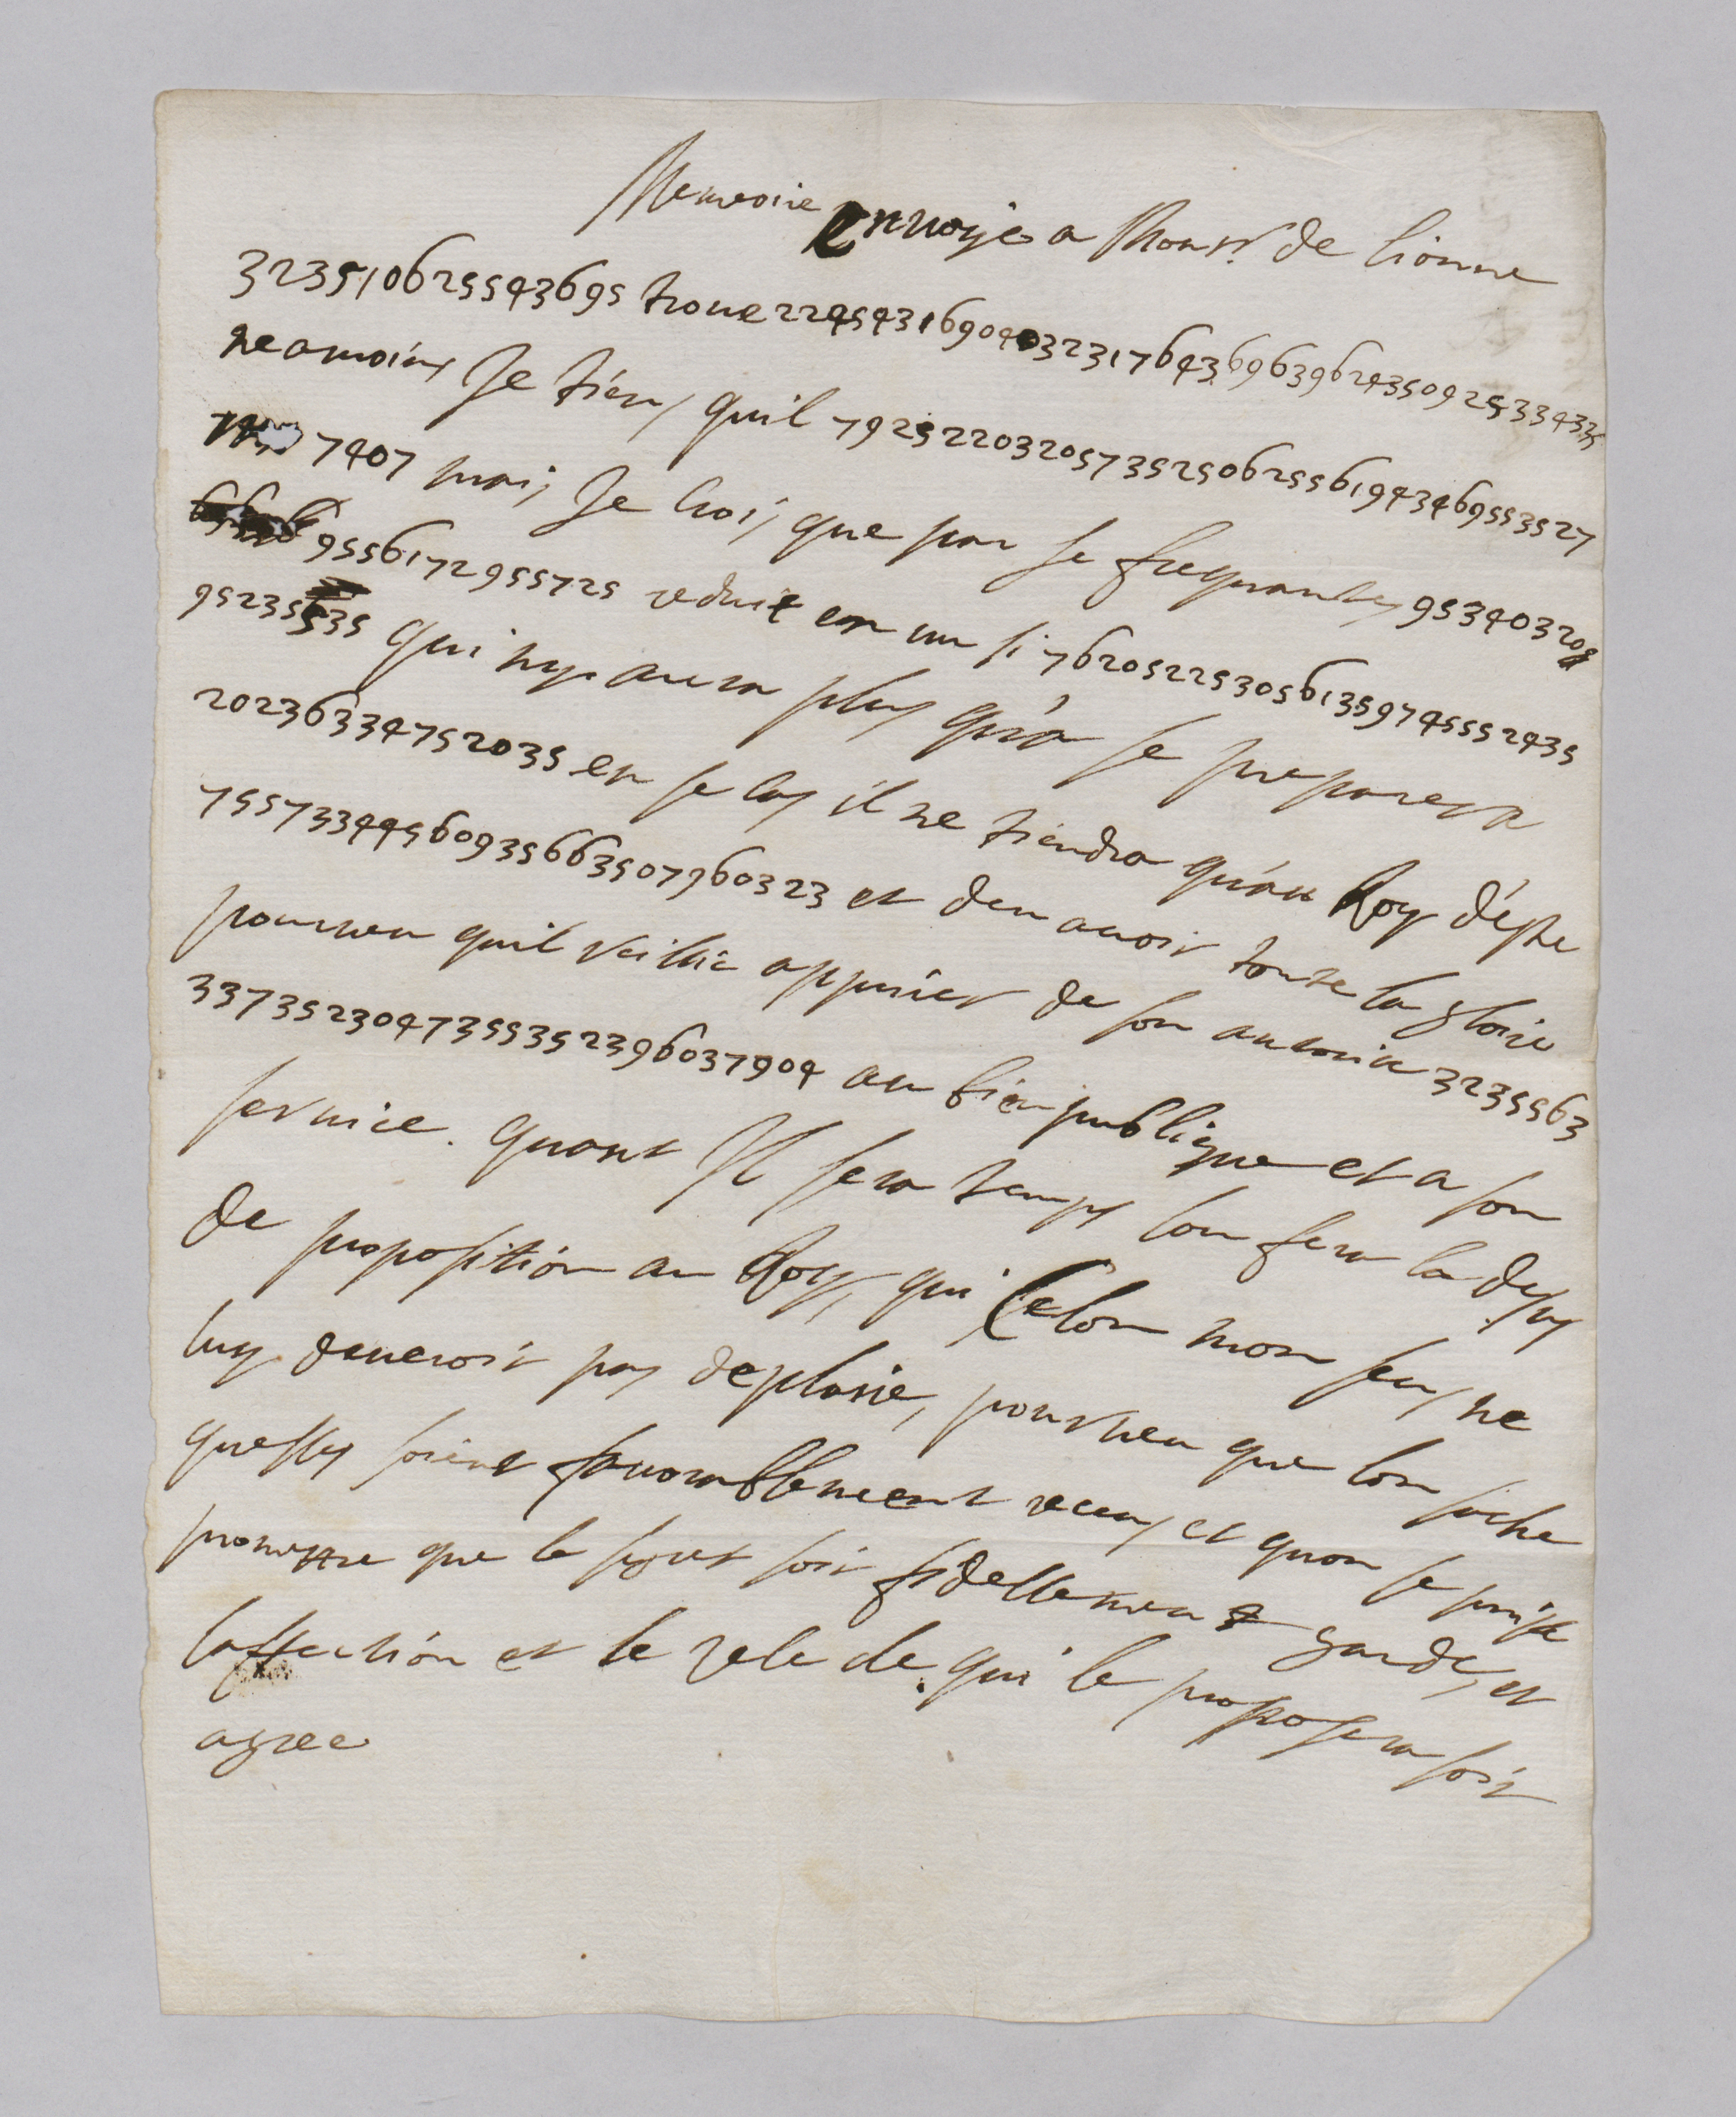 Memoire envoye a Monsr. de Lionne
32351062554 3695 trouve 22454316904032317643696396243509253343 35
neamoins Je tiens quil 79252203205735250625561943469553527
7407 mais Je croi, que par se frequantes 953403208
9556172955725 reduit en un si 7620522530561359745552435
95235535 qui ny aura plus qu'a se preparer a
20236334752035 en se cas il ne tiendra qu'au Roy d'estre
75573344560935663507960323 et den avoir toute la gloire
pourveu quil veillie appuier de son autorite 3235563
3373523047355352396037904 au bien publique et a son
service. quant Il sera temps lon fera la dessus
de proposition au Roy, qui selon mon sens ne
luy deveroit pas deplasie, pourveu que lon sache
quelles soient favorablement receus et quon se puisse
promettre que le segret soit fidellement gardé, et
laffection et le zele de qui le proposera soit
agree